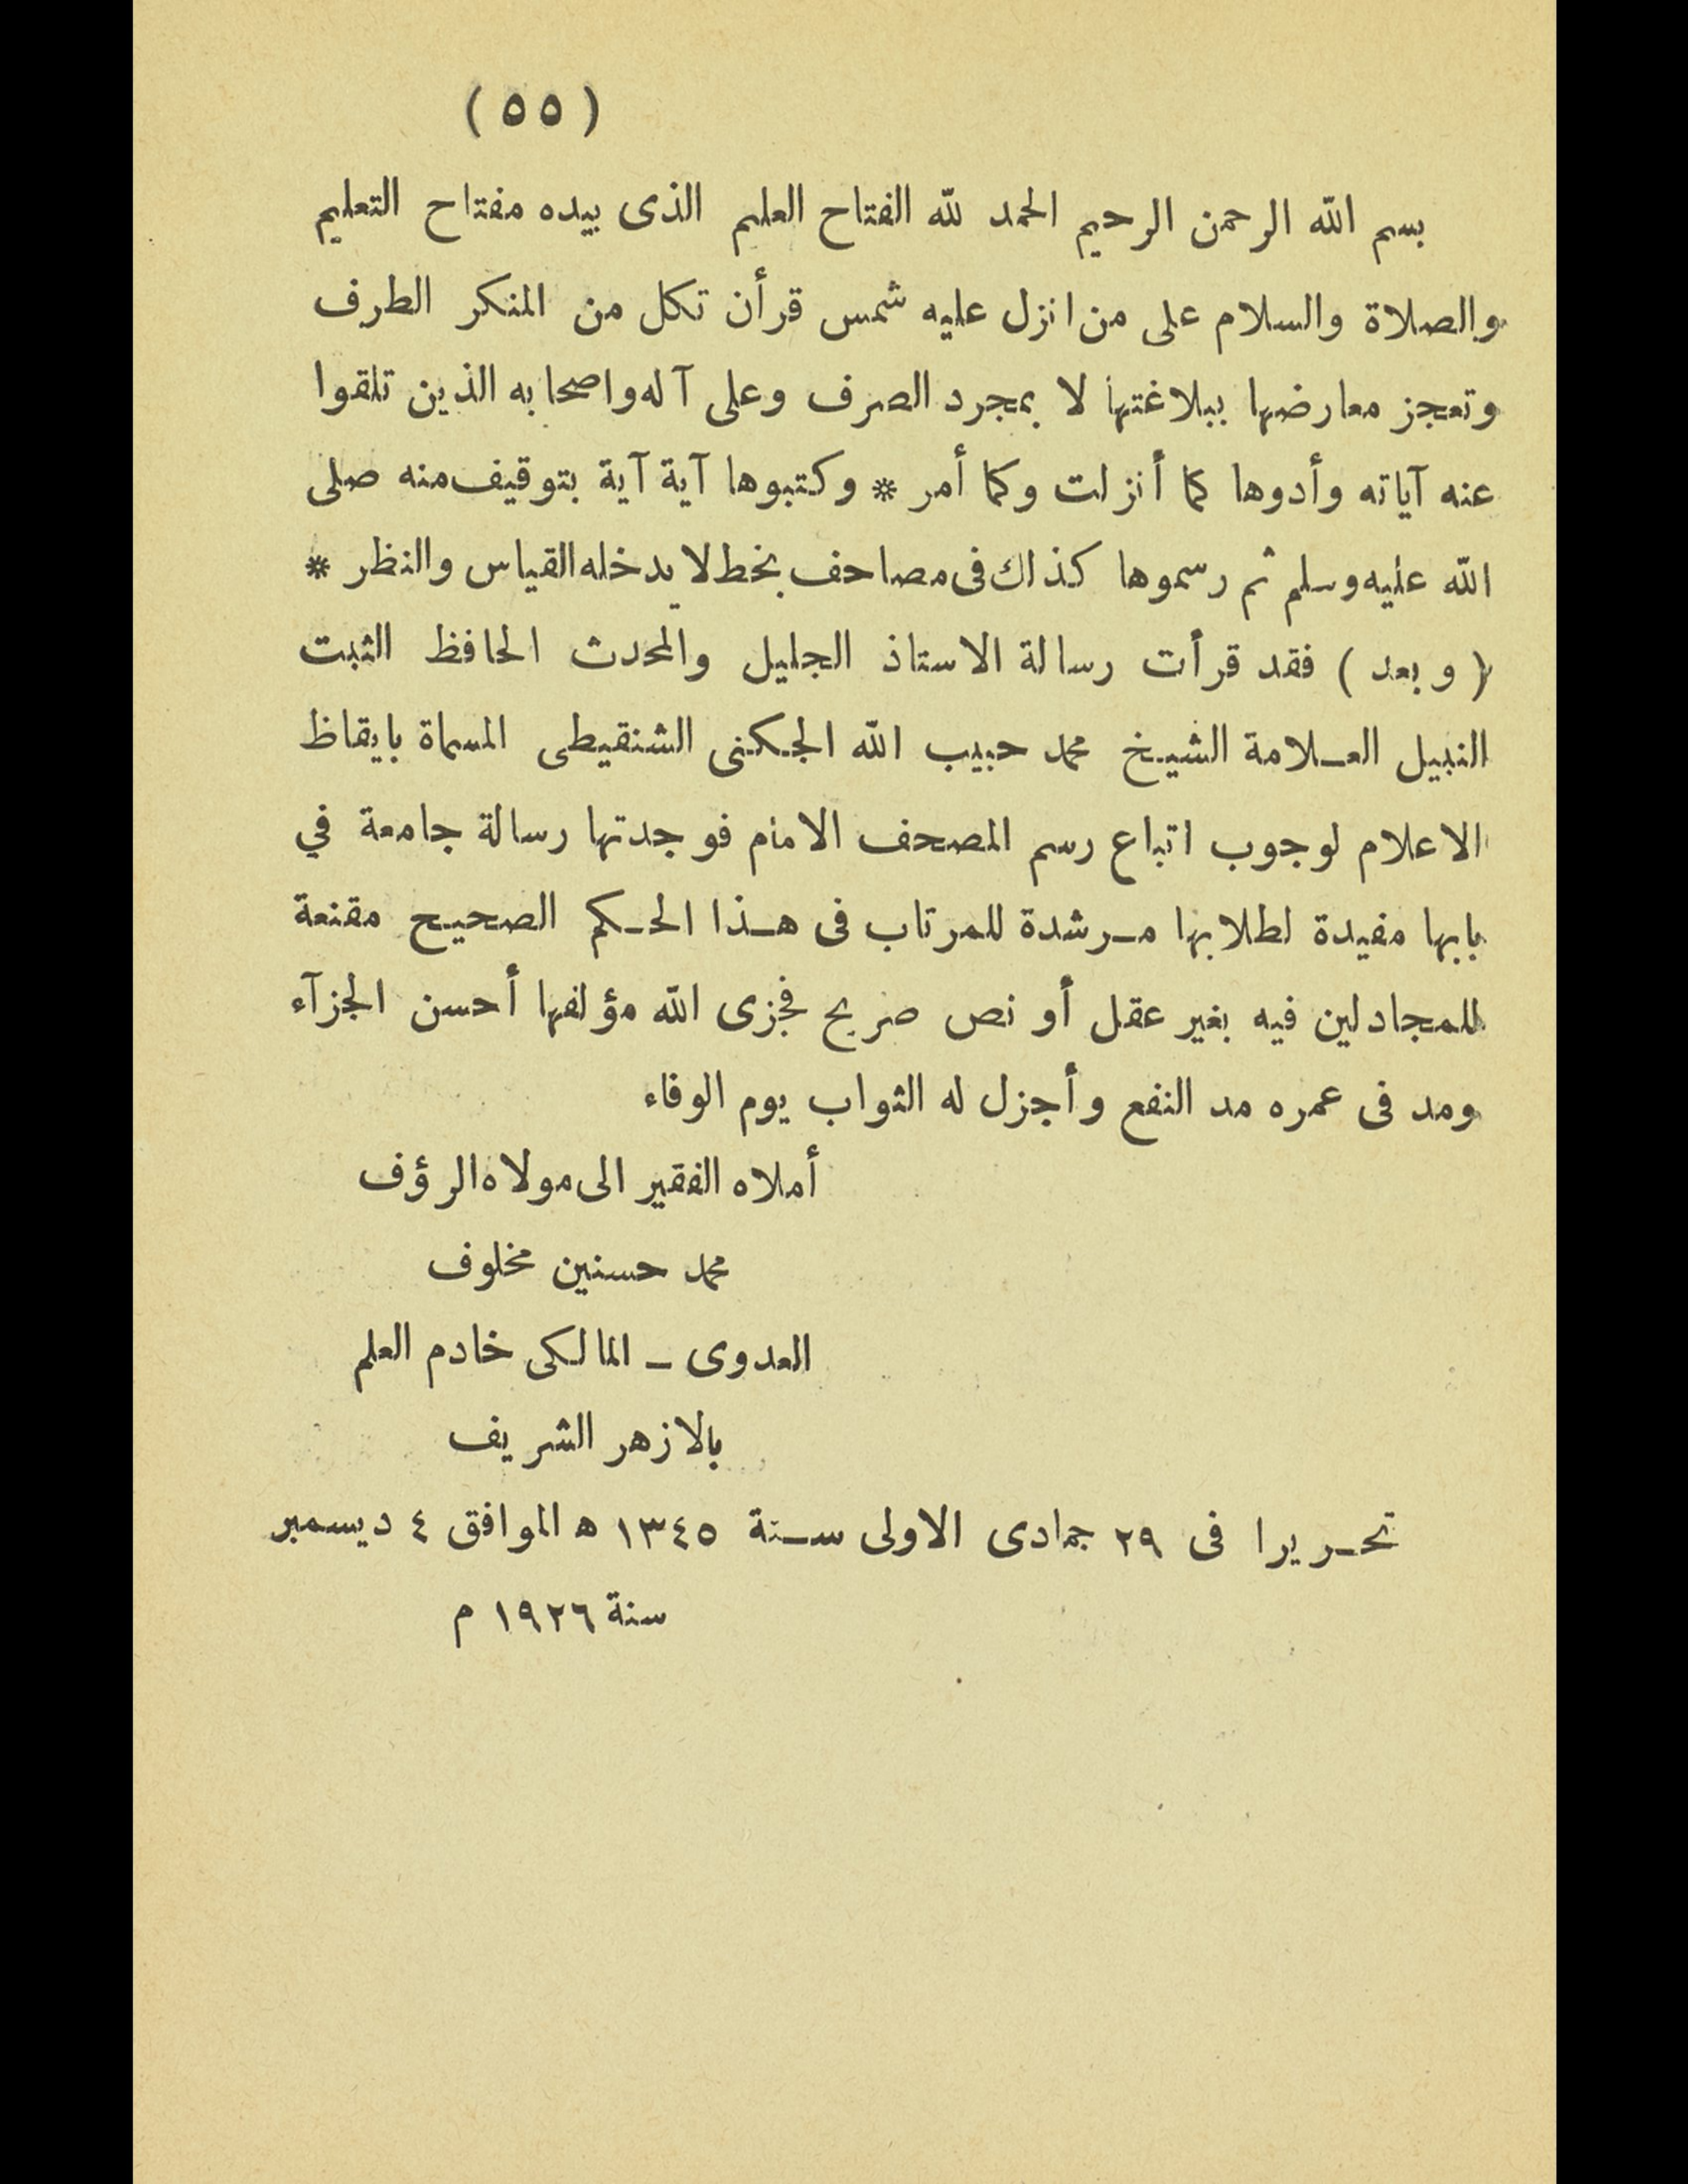 ( ٥٥ )
بسم الله الرحمن الرحيم الحمد لله الفتاح العليم الذى بيده مفتاح التعليم
والصلاة والسلام على من انزل عليه شمس قرأن تكل من المنكر الطرف
وتعجز معارضها ببلاغتها لا بمجرد الصرف وعلى آله واصحابه الذين تلقوا
عنه آياته وأدوها كما أنزلت وكما أمر * وكتبوها آية آية بتوقيف منه صلى
الله عليه وسلم ثم رسموها كذاك فى مصاحف بخط لا يدخله القياس والنظر *
( وبعد ) فقد قرأت رسالة الاستاذ الجليل والمحدث الحافظ الثبت
النبيل العلامة الشيخ محمد حبيب الله الجكنى الشنقيطى المسماة بايقاظ
الاعلام لوجوب اتباع رسم المصحف الامام فوجدتها رسالة جامعة في
بابها مفيدة لطلابها مرشدة للمرتاب فى هذا الحكم الصحيح مقنعة
للمجادلين فيه بغير عقل أو نص صريح فجزى الله مؤلفها أحسن الجزآء
ومد فى عمره مد النفع وأجزل له الثواب يوم الوفاء
أملاه الفقير الى مولاه الرؤف
محمد حسنين مخلوف
العدوى ـ المالكى خادم العلم
بالازهر الشريف
تحريرا فى ٢٩ جمادى الاولى سنة ١٣٤٥ ه الموافق ٤ ديسمبر
سنة ١٩٢٦ م